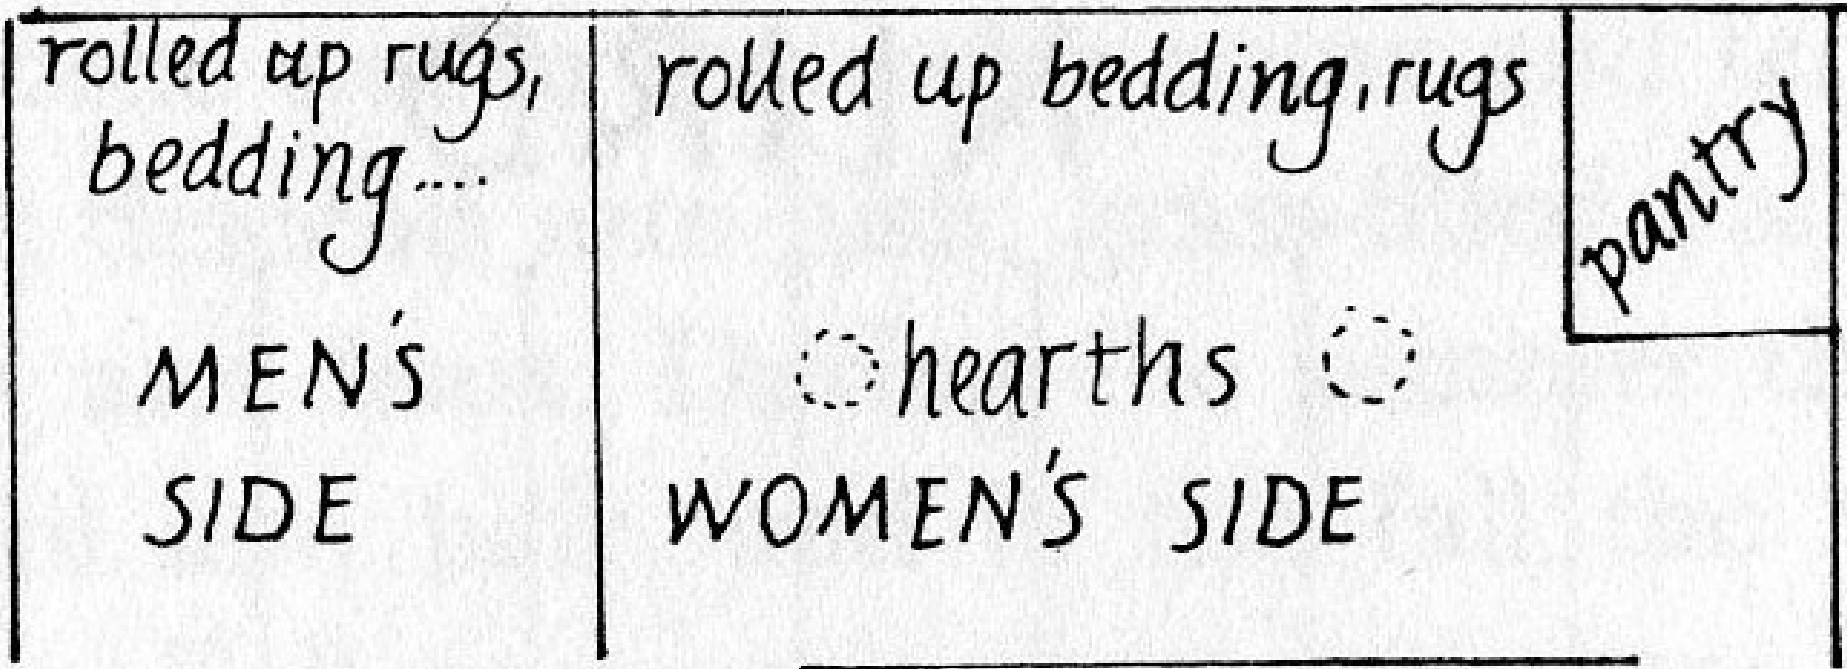 rolled up rugs,
bedding....
MEN'S
SIDE
rolled up bedding, rugs
hearths
WOMEN'S SIDE
pantry